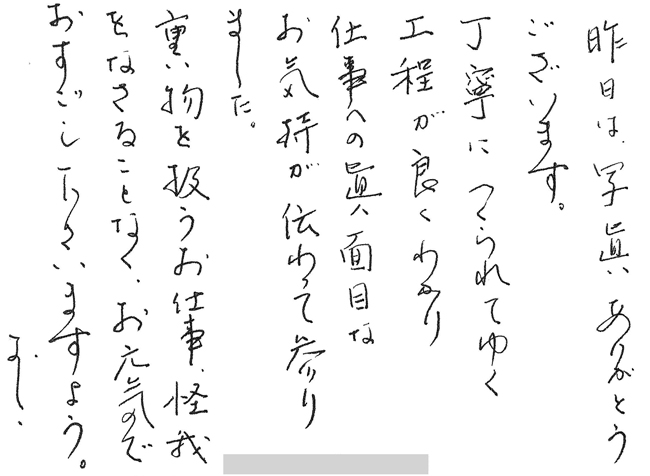 昨日は、写眞ありがとう
ございます。
丁寧につくられてゆく
工程が良くわかり
仕事への眞面目な
お気持が伝わって参り
ました。
重い物を扱うお仕事、怪我
をなさることなく、お元気で
おすごし下さいますよう。